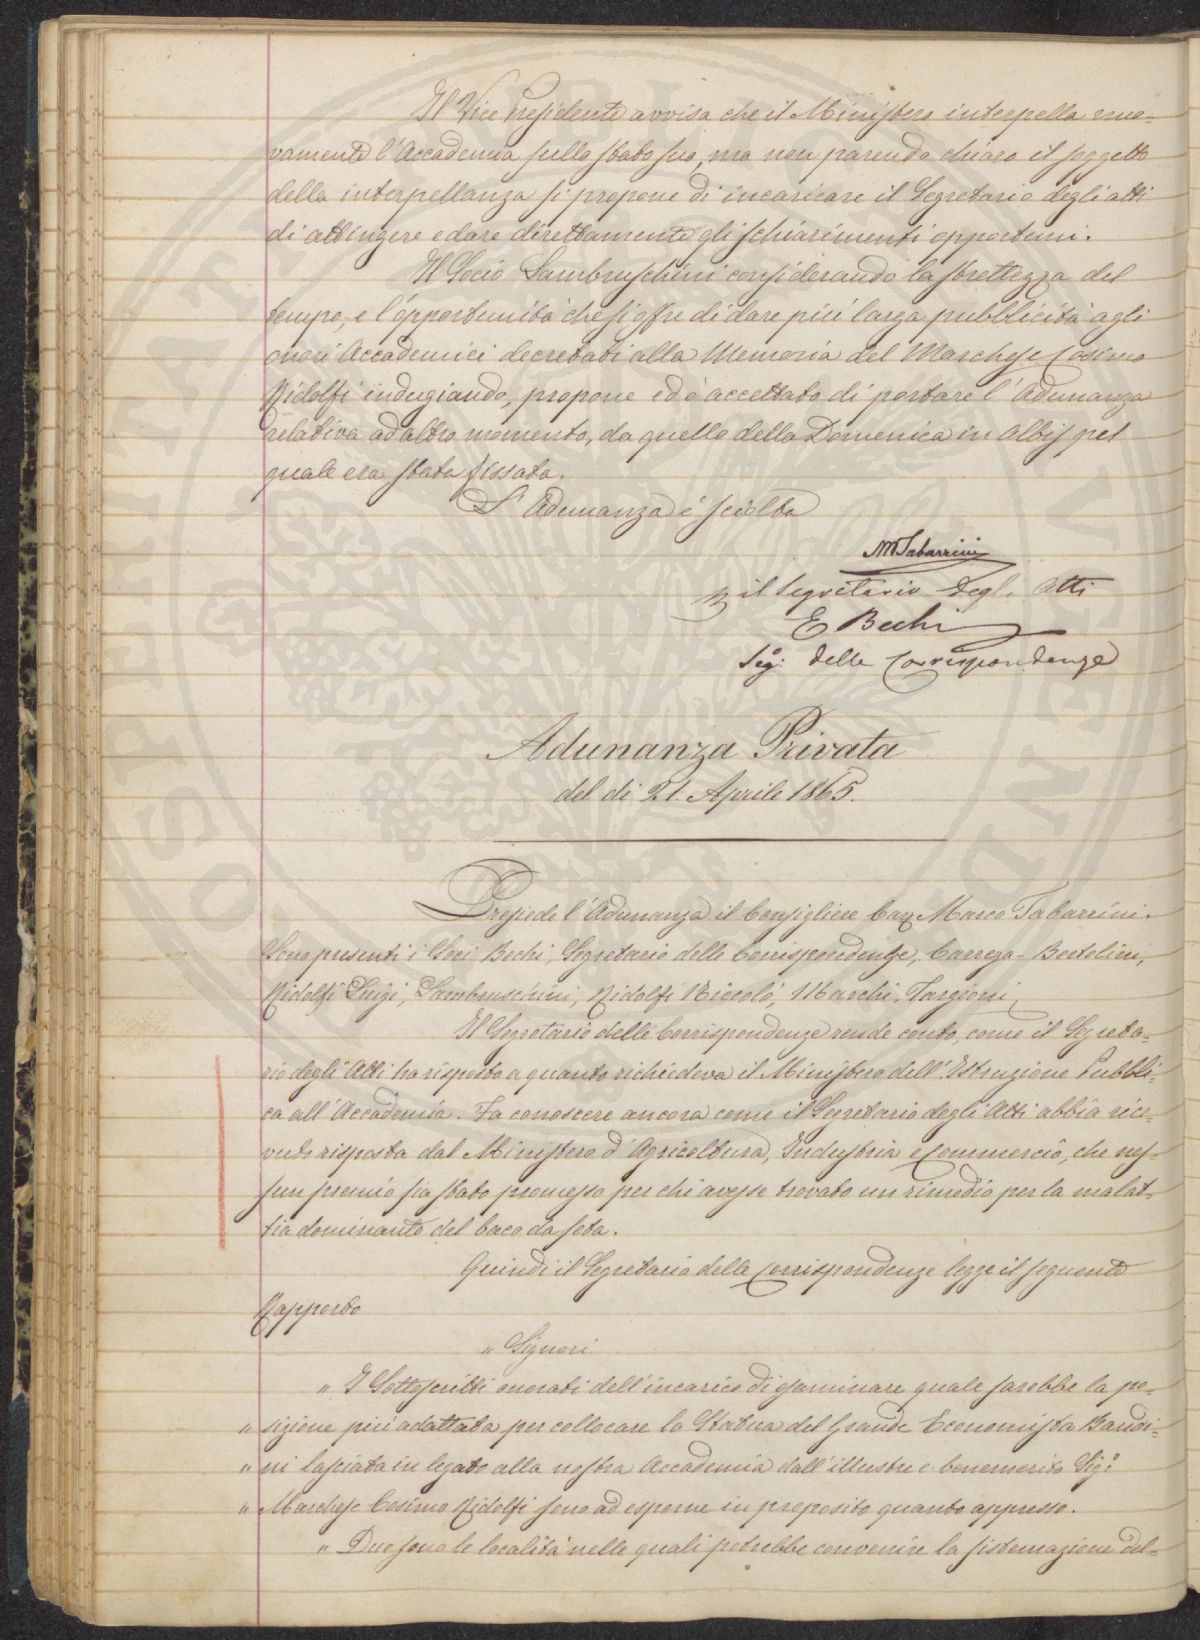 Il Vice Presidente avvisa che il Ministero interpella nuo=
vamente l'Accademia sullo stato suo, ma non parendo chiaro il soggetto
della interpellanza si propone di incaricare il Segretario degli atti
di attingere e dare direttamente gli schiarimenti opportuni.
Il Socio Lambruschini considerando la strettezza del
tempo, e l'opportunità che si offre di dare più larga pubblicità agli
onori Accademici decretati alla Memoria del Marchese Cosimo
Ridolfi indugiando, propone ed è accettato di portare l'Adunanza
relativa ad altro momento, da quello della Domenica in Albis pel
quale era stata fissata.
L'Adunanza è sciolta
M Tabarrini
Il Segretario degli Atti
E Bechi
Seg: delle Corrispondenze
Adunanza Privata
del dì 21. Aprile 1865.
Presiede l'Adunanza il Consigliere Cav Marco Tabarrini.
Sono presenti i Soci, Bechi, Segretario delle Corrispondenze, Carrega-Bertolini,
Ridolfi Luigi, Lambruschini, Ridolfi Niccolò, Marchi, Targioni
Il Segretario delle Corrispondenze rende conto, come il Segreta=
rio degli Atti ha risposto a quanto richiedeva il Ministero dell'Istruzione Pubbli=
ca all'Accademia. Fa conoscere ancora come il Segretario degli Atti abbia rice=
vuto risposta dal Ministero d'Agricoltura, Industria e Commercio, che nes=
sun premio sia stato promesso per chi avesse trovato un rimedio per la malat=
tia dominante del baco da seta.
Quindi il Segretario delle Corrispondenze legge il seguente
Rapporto
" Signori
" I Sottoscritti onorati dell'incarico di esaminare quale sarebbe la po=
" sizione più adattata per collocare la Statua del Grande Economista Bandi=
" ni lasciata in legato alla nostra Accademia dall'illustre e benemerito Sig.r
" Marchese Cosimo Ridolfi sono ad esporne in proposito quanto appresso.
" Due sono le località nelle quali potrebbe convenire la sistemazione del=